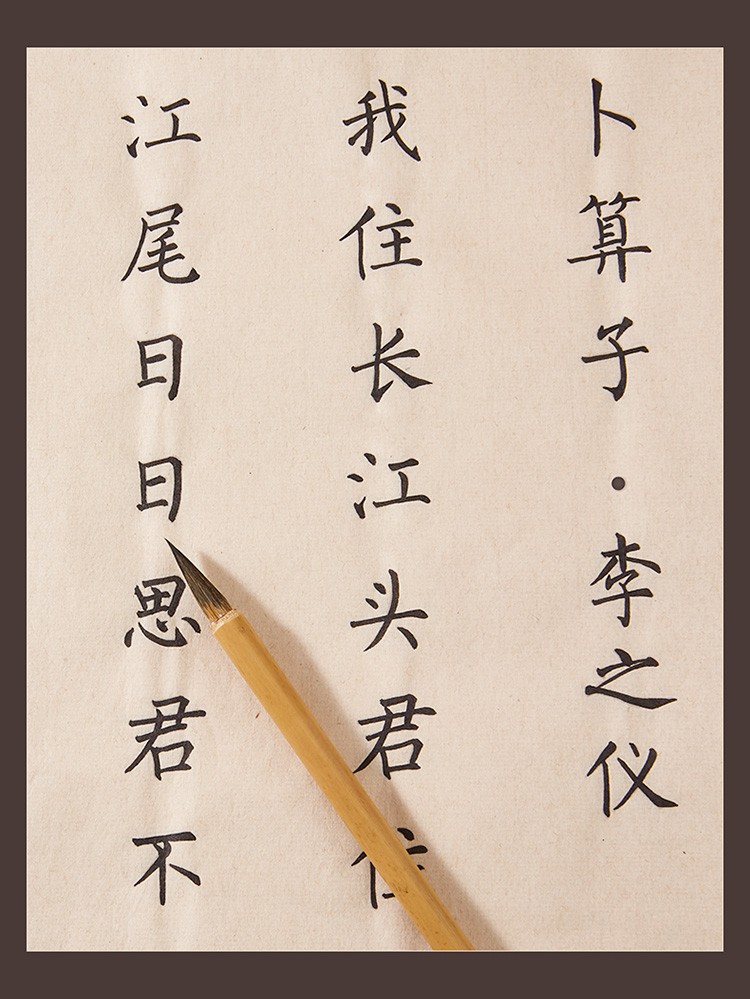 卜算子·李之仪
我住长江头君住
江尾日日思君不